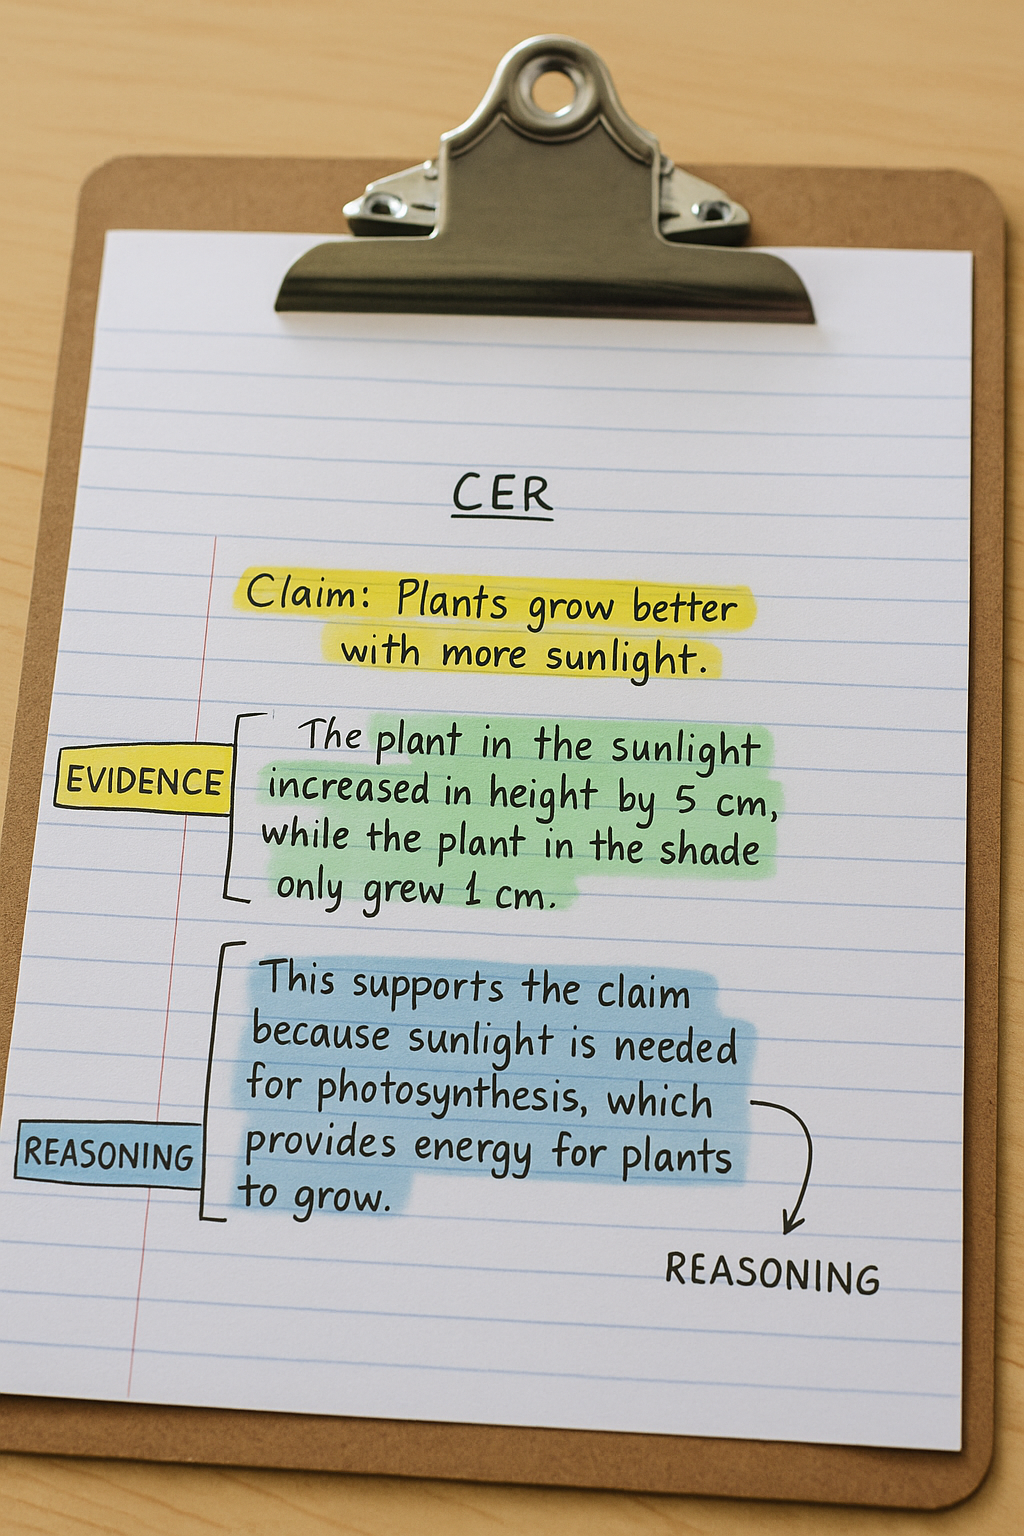 CER
Claim: Plants grow better
with more sunlight.
EVIDENCE
The plant in the sunlight
increased in height by 5 cm,
while the plant in the shade
only grew 1 cm.
REASONING
This supports the claim
because sunlight is needed
for photosynthesis, which
provides energy for plants
to grow.
REASONING